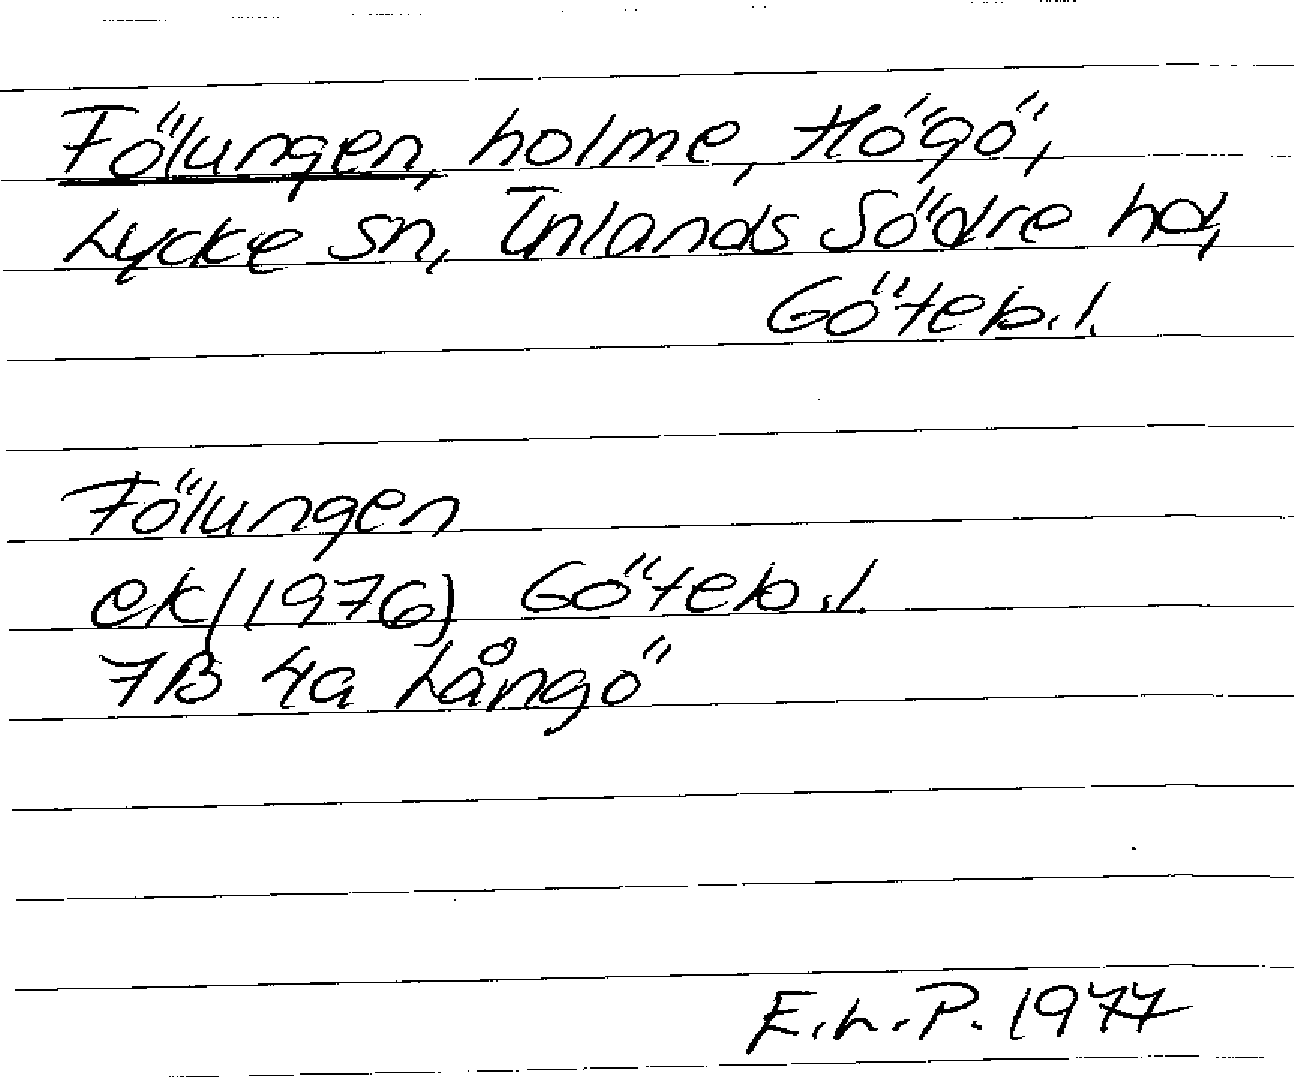 Fölungen, holme, Högö,
Lycke sn, Inlands Södre hd,
Göteb.l.
Fölungen
ek (1976) Göteb.l.
7B 4a Långö
E.L.P. 1977